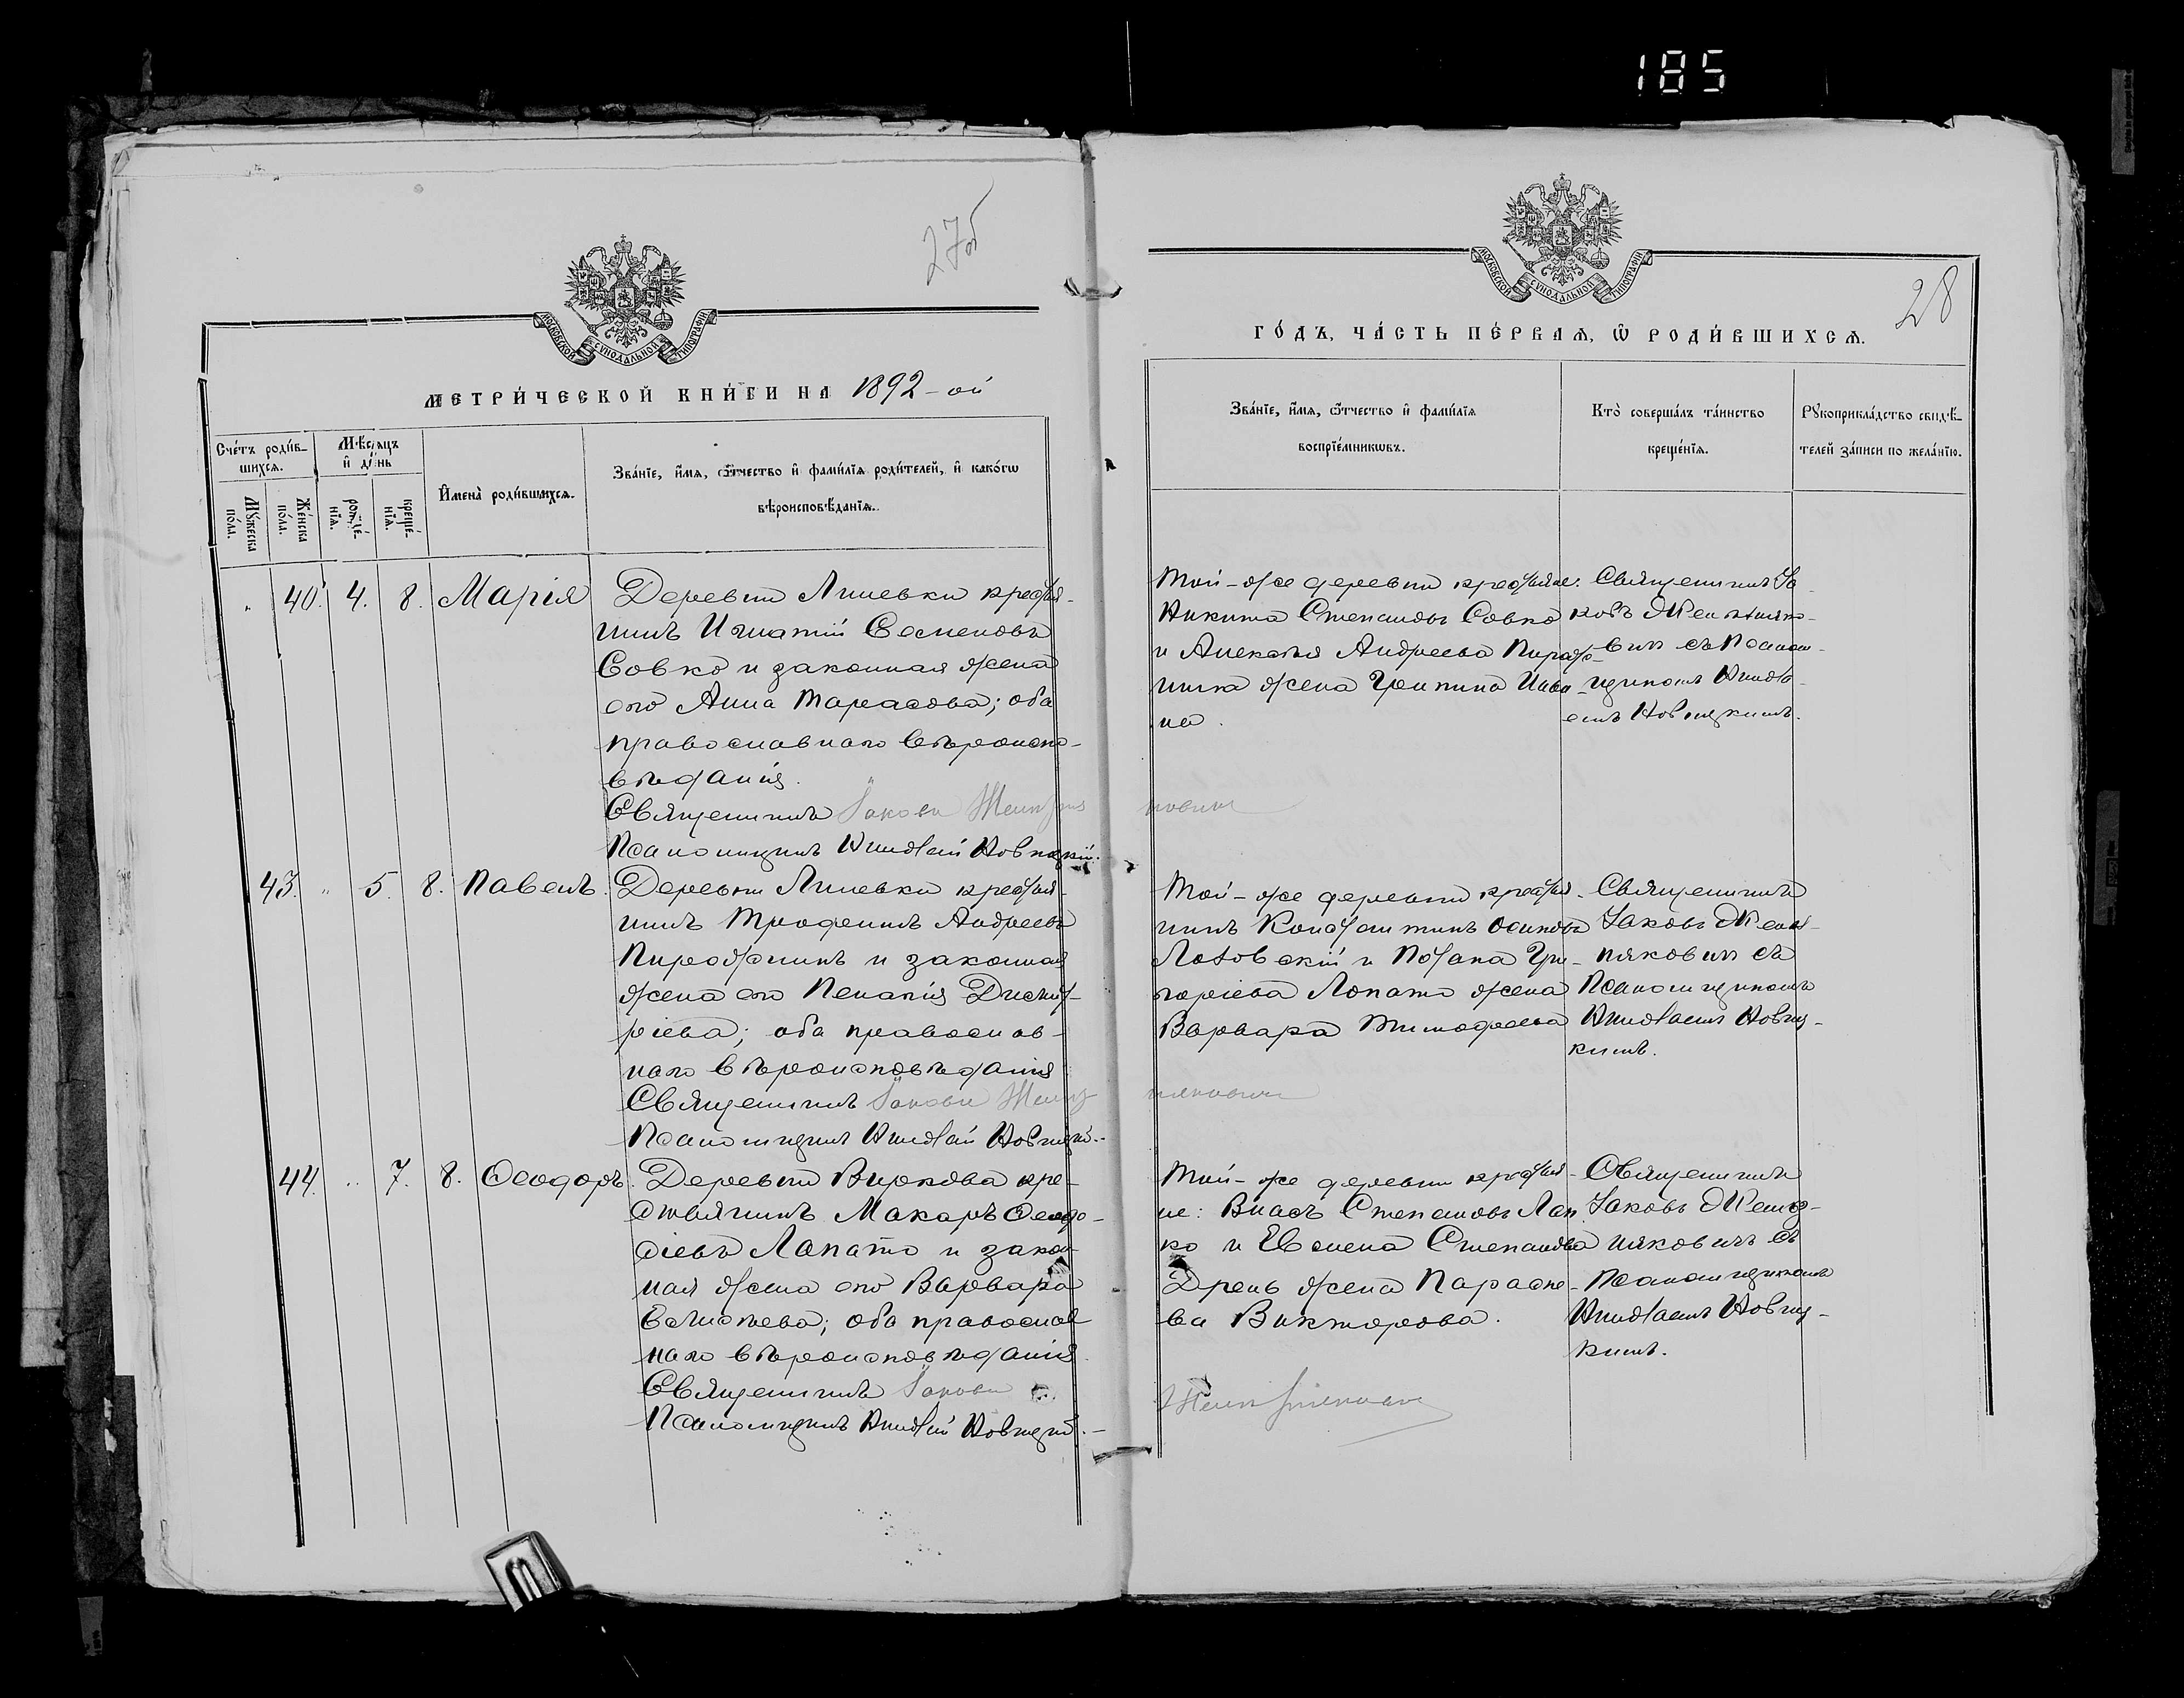 185
27об
МОСКОВСКОЙ СѴНОДАЛЬНОЙ ТИПОГРАФІИ
МЕТРИ́ЧЕСКОЙ КНИ́ГИ НА 1892-ой
Сче́тъ роди́в-
шихсѧ.
Мꙋ́жеска
по́ла.
Же́нска
по́ла.
Мѣ́сѧцъ
и҆ де́нь
рожде́-
нїѧ.
креще́-
нїѧ.
И҆мена̀ роди́вшихсѧ.
Зва́нїе, и҆́мѧ, ѻ҆́тчество и҆ фами́лїѧ роди́телей, и҆ како́гѡ
вѣроисповѣ́данїѧ.
„ 40. 4. 8. Марія
Деревни Липевки крестья-
нинъ Игнатій Семеновъ
Совко и законная жена
его Анна Тарасова; оба
православнаго вѣроиспо-
вѣданія.
Священникъ Іаковъ
Псаломщикъ Николай Новицкій.
43. „ 5. 8. Павелъ.
Деревни Липевки крестья-
нинъ Трофимъ Андреевъ
и законная
жена его Пелагія Димит-
ріева; оба православ-
наго вѣроисповѣданія
Священникъ Іаковъ
Псаломщикъ Николай Новицкій.
44. „ 7. 8. Ѳеодоръ.
Деревни Виркова кре-
стьянинъ Макаръ
Лапато и закон-
ная жена его Варвара
оба православ
наго вѣроисповѣданія
Священникъ Іаковъ
Псаломщикъ Николай Новицкій.
28
МОСКОВСКОЙ СѴНОДАЛЬНОЙ ТИПОГРАФІИ
ГО́ДЪ, ЧА́СТЬ ПЕ́РВАѦ, Ѡ҆ РОДИ́ВШИХСѦ.
Зва́нїе, и҆́мѧ, ѻ҆́тчество и҆ фами́лїѧ
воспрїе́мникѡвъ.
Кто̀ соверша́лъ та́инство
креще́нїѧ.
Рꙋкоприкла́дство свидѣ́-
телей за́писи по жела́нїю.
Той-же деревни крестьяне:
Никита Степановъ Совко
и Алексѣя Андреева
жена Грипина Ива
на.
Священникъ Іа-
ковъ
съ Псалом-
щикомъ Никола-
емъ Новицкимъ.
Той-же деревни крестья-
нинъ Константинъ Осиповъ
и Потапа Гри-
горіева Лопато жена
Варвара Тимофеева
Священникъ
Іаковъ
съ
Псаломщикомъ
Николаемъ Новиц-
кимъ.
Той-же деревни крестья-
не: Власъ Степановъ Лап
ко и Евмена Степанова
Дрень жена Параске-
ва Викторова.
Священникъ
Іаковъ
съ
Псаломщикомъ
Николаемъ Новиц-
кимъ.